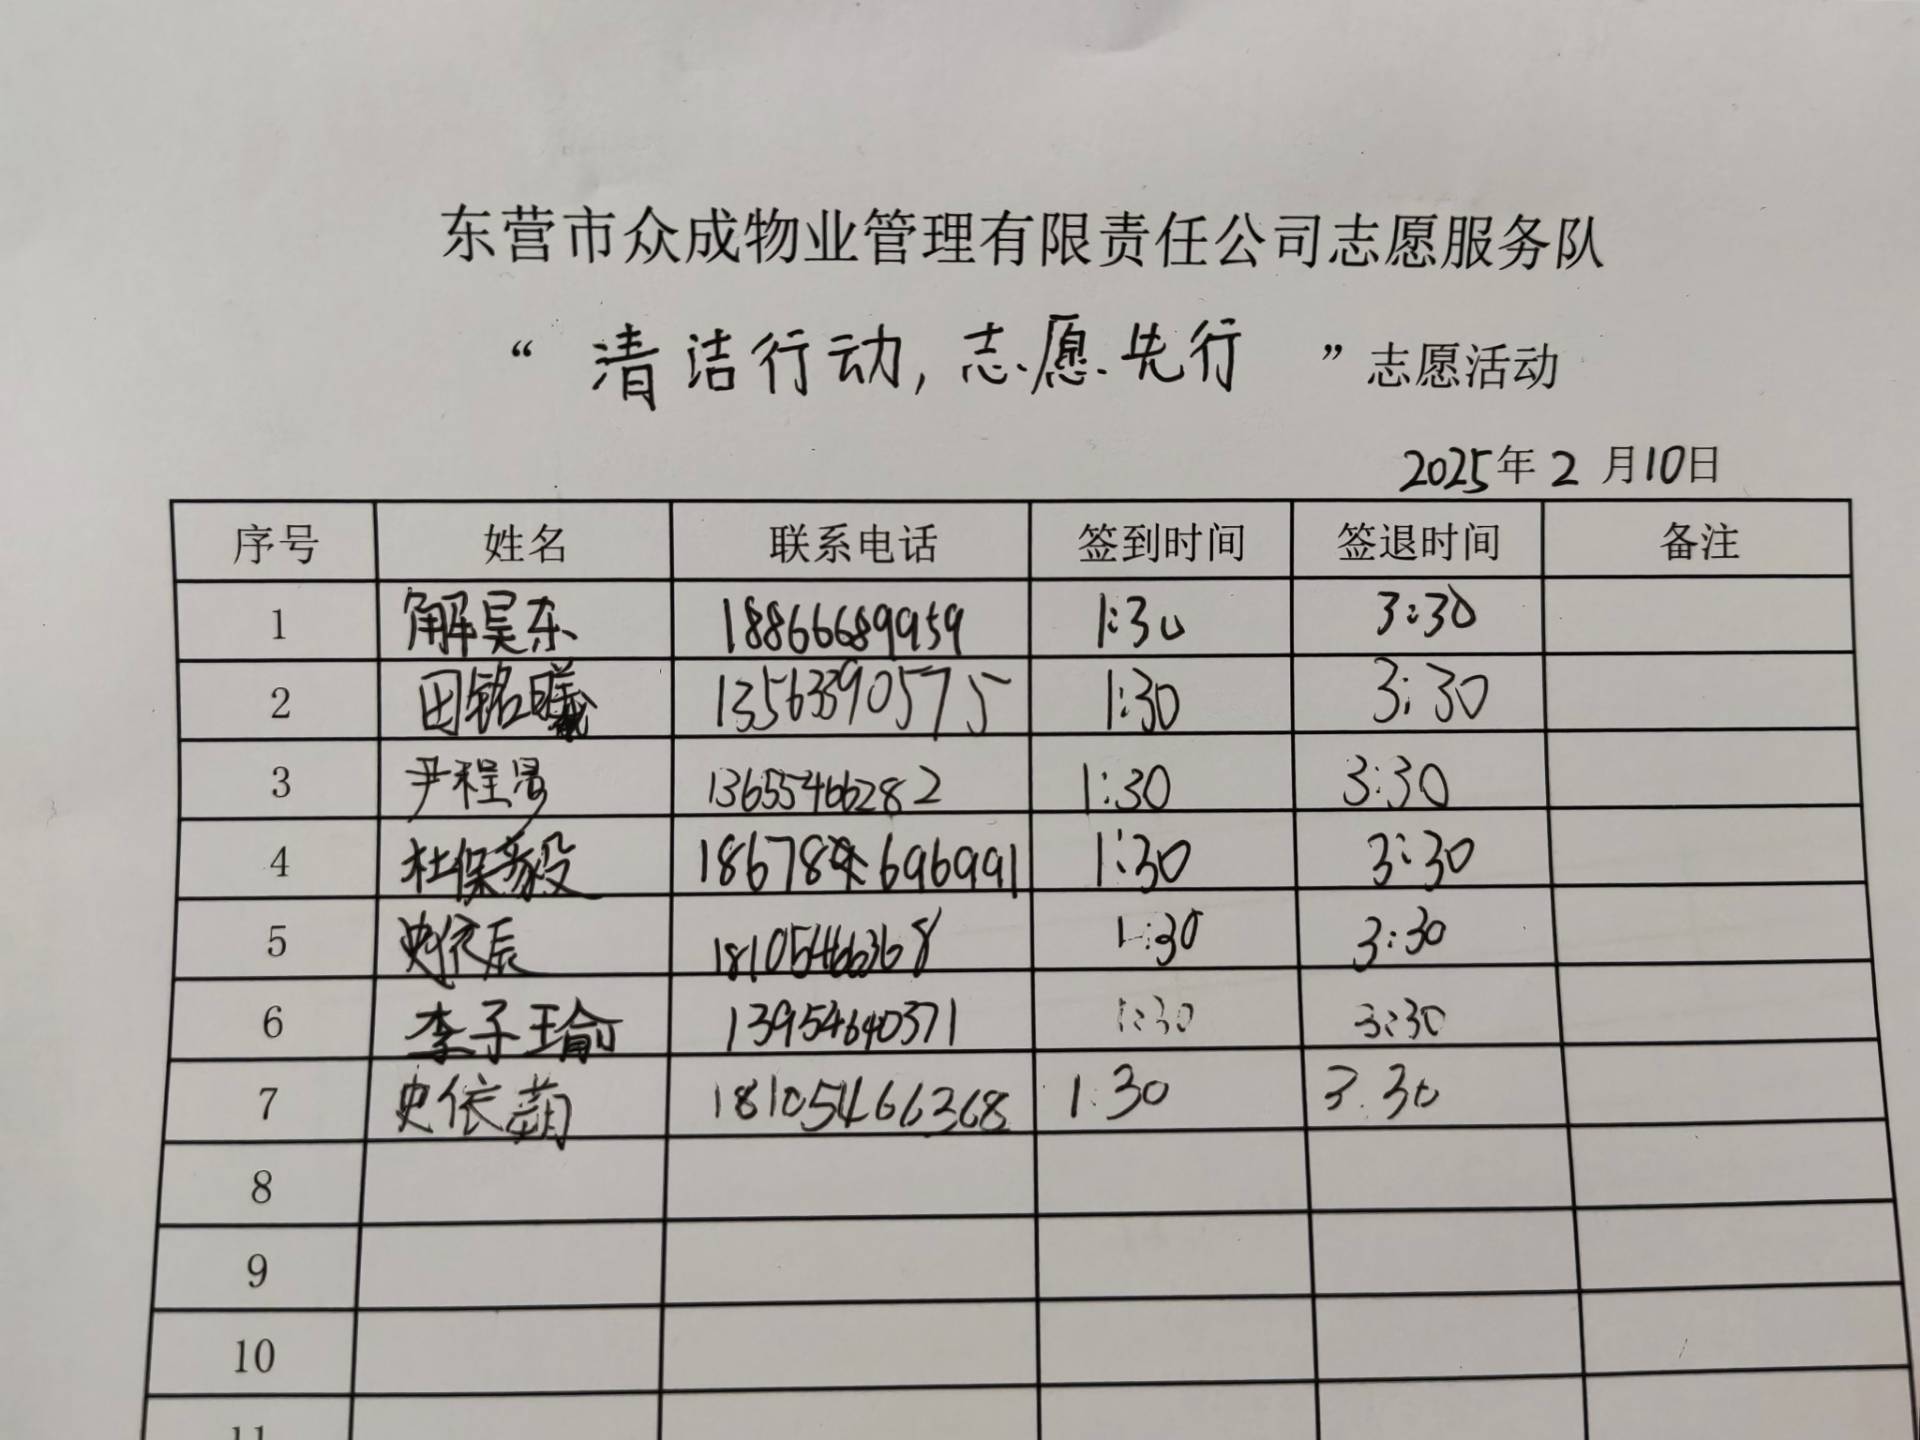 东营市众成物业管理有限责任公司志愿服务队
“清洁行动,志愿先行”志愿活动
2025年2月10日
序号 姓名 联系电话 签到时间 签退时间 备注
1 解昊东 18866689959 1:30 3:30
2 田铭曦 13563390575 1:30 3:30
3 尹程 13655466282 1:30 3:30
4 杜保毅 1:30 3:30
5 史依辰 18105466368 1:30 3:30
6 李子瑜 13954640371 1:30 3:30
7 史依萌 18105466368 1:30 3:30
8
9
10
11